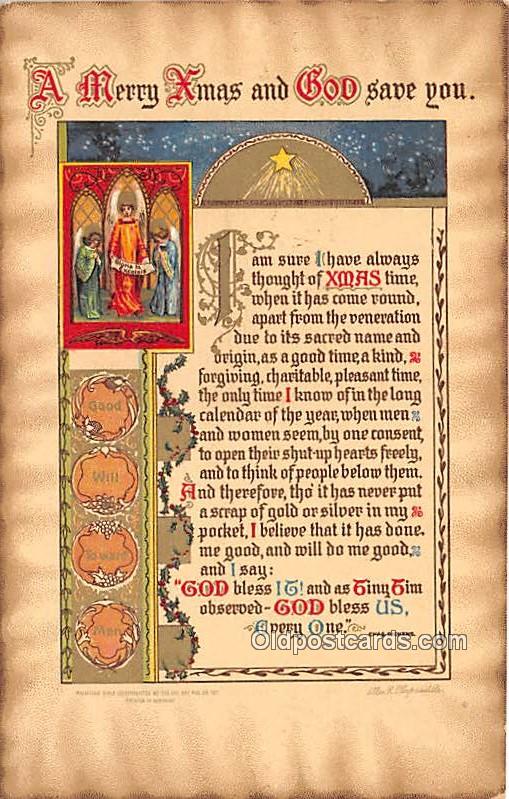 A Merry Xmas and GOD save you.
Gloria in
Excelsis
I am sure I have always
thought of XMAS time,
when it has come round,
apart from the veneration
due to its sacred name and
origin, as a good time, a kind,
forgiving, charitable, pleasant time,
the only time I know of in the long
calendar of the year, when men
and women seem, by one consent,
to open their shut-up hearts freely,
and to think of people below them.
And therefore, tho' it has never put
a scrap of gold or silver in my
pocket, I believe that it has done.
me good, and will do me good,
and I say:
"GOD bless IT! and as Tiny Tim
observed-GOD bless US,
Every One."
Good
Will
Toward
Men
Oldpostcards.com